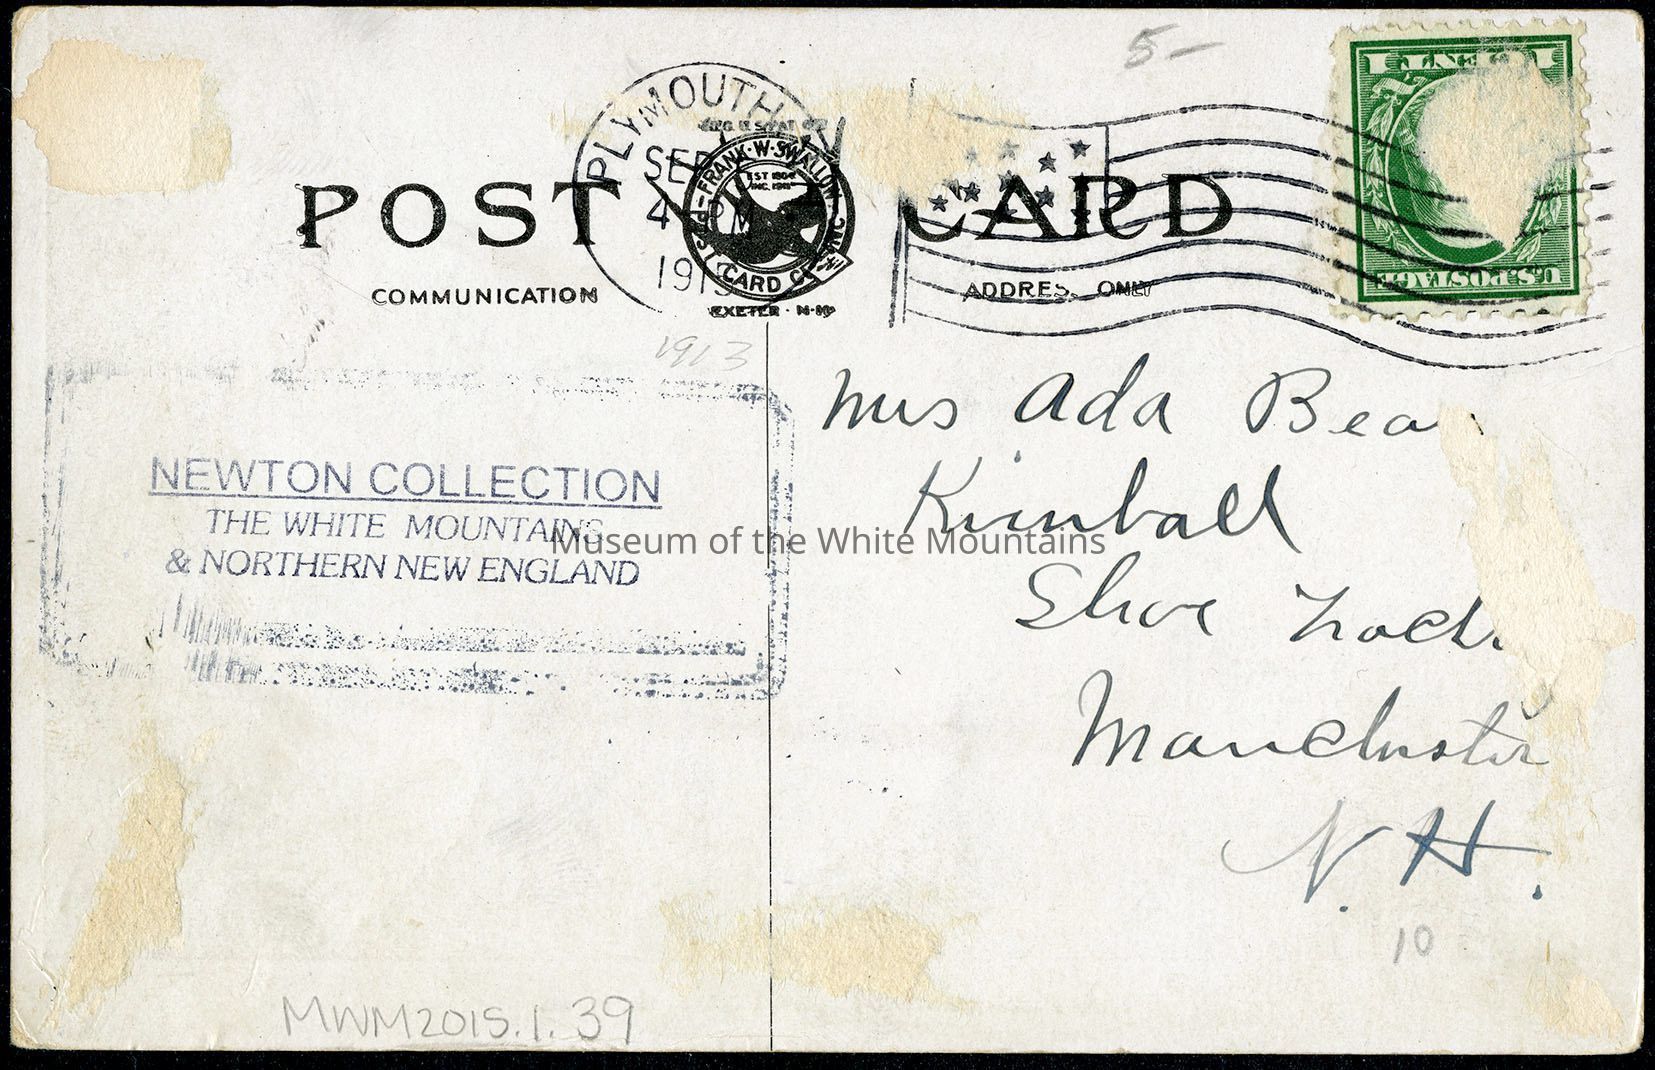 5-
1 CENT 1
U.S. POSTAGE
PLYMOUTH
SEP
4 PM
1913
REG. U.S. PAT. OFF.
FRANK·W·SWALLOW
POST CARD CO. INC.
EST 1804
INC. 1911
EXETER · N·H·
POST CARD
COMMUNICATION
ADDRESS ONLY
1913
Mrs Ada Bea
Kimball
Shoe
Manchester
N. H.
NEWTON COLLECTION
THE WHITE MOUNTAINS
& NORTHERN NEW ENGLAND
Museum of the White Mountains
10
MWM2015.1.39